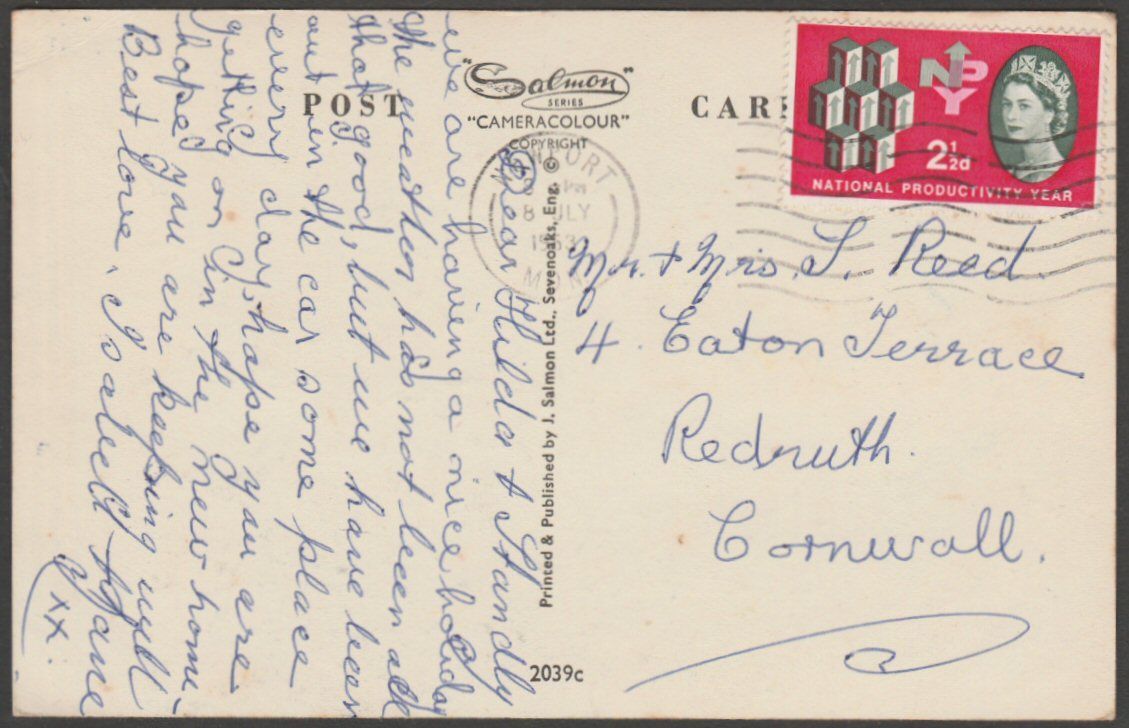 POST CARD
"Salmon"
SERIES
"CAMERACOLOUR"
COPYRIGHT
©
Printed & Published by J. Salmon Ltd., Sevenoaks, Eng.
2039c
NPY
2½d
NATIONAL PRODUCTIVITY YEAR
NEWPORT
PM
8 JLY
1963
MON
Dear Hilda & Standly
we are having a nice holiday
the weather has not been all
that good, but we have been
out in the car some place
every day, hope you are
getting on in the new home
hope you are keeping well
Best love, Isabell & Jane
xx.
Mr. & Mrs. S. Reed.
4. Eaton Terrace
Redruth.
Cornwall.